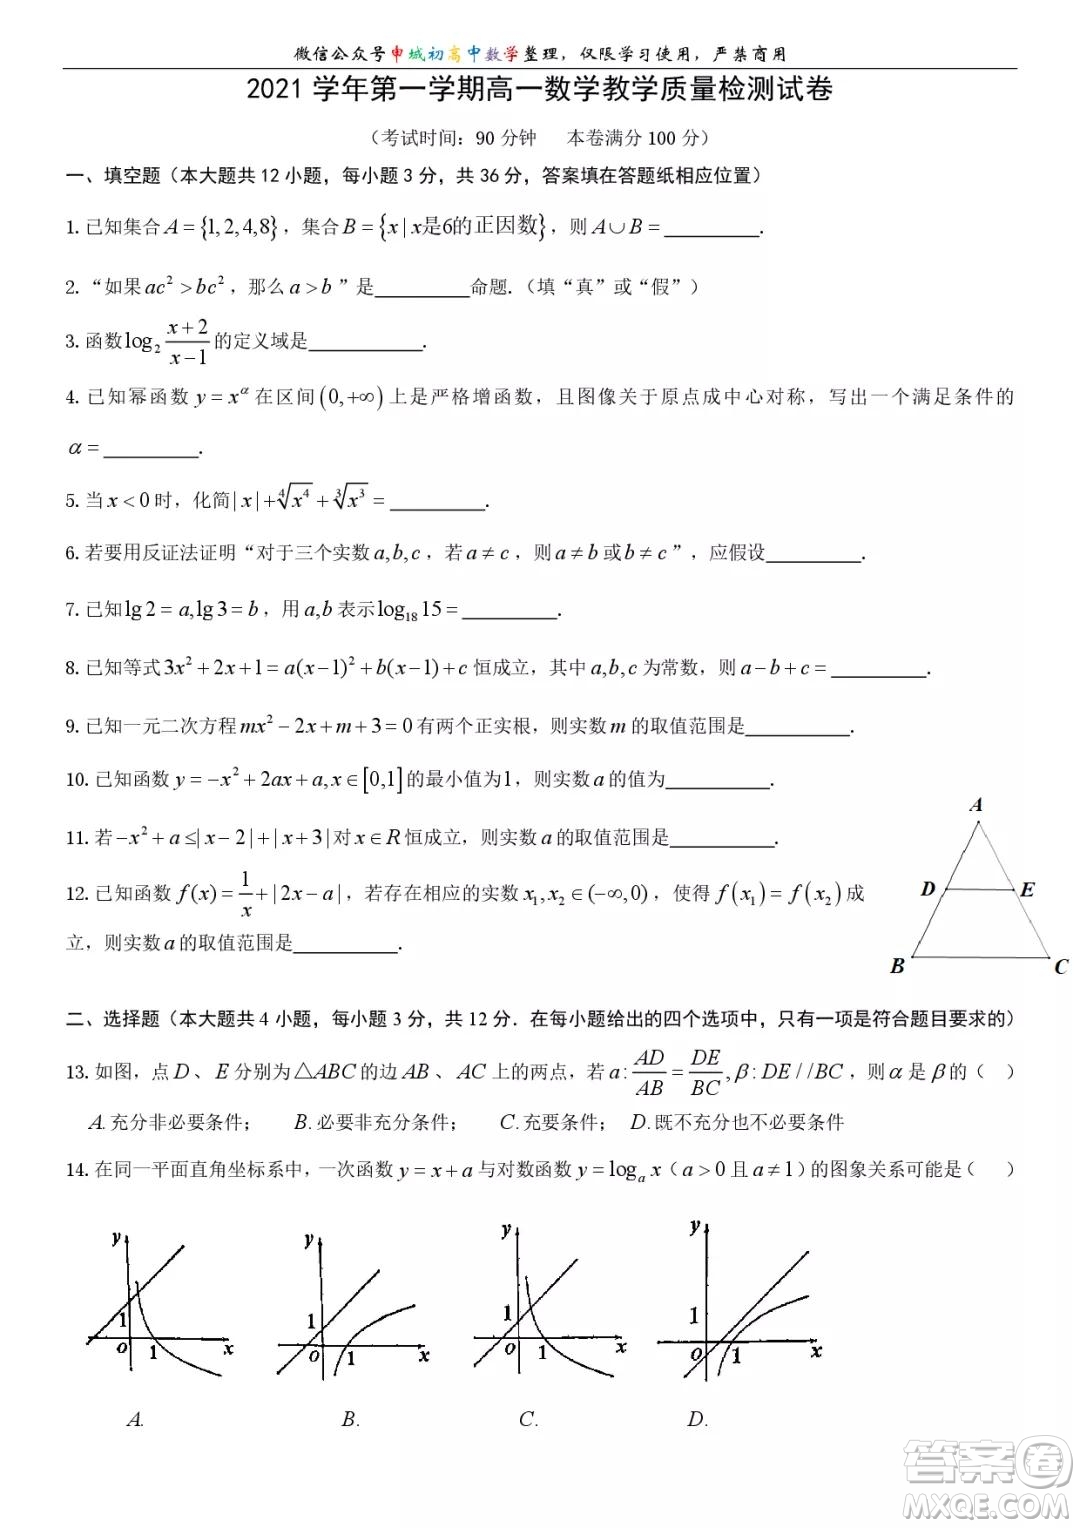 微信公众号申城初高中数学整理，仅限学习使用，严禁商用
2021 学年第一学期高一数学教学质量检测试卷
（考试时间：90 分钟　本卷满分 100 分）
一、填空题（本大题共 12 小题，每小题 3 分，共 36 分，答案填在答题纸相应位置）
1. 已知集合 A = {1,2,4,8}，集合 B = {x | x是6的正因数}，则 A∪B = ________.
2. “如果 ac² > bc²，那么 a > b”是________命题.（填“真”或“假”）
3. 函数 log₂ (x+2)/(x−1) 的定义域是________.
4. 已知幂函数 y = x^α 在区间 (0,+∞) 上是严格增函数，且图像关于原点成中心对称，写出一个满足条件的
α = ________.
5. 当 x < 0 时，化简 | x | + ⁴√x⁴ + ³√x³ = ________.
6. 若要用反证法证明“对于三个实数 a,b,c，若 a ≠ c，则 a ≠ b 或 b ≠ c”，应假设________.
7. 已知 lg 2 = a, lg 3 = b，用 a,b 表示 log₁₈ 15 = ________.
8. 已知等式 3x² + 2x + 1 = a(x−1)² + b(x−1) + c 恒成立，其中 a,b,c 为常数，则 a − b + c = ________.
9. 已知一元二次方程 mx² − 2x + m + 3 = 0 有两个正实根，则实数 m 的取值范围是________.
10. 已知函数 y = −x² + 2ax + a, x ∈ [0,1] 的最小值为 1，则实数 a 的值为________.
11. 若 −x² + a ≤ | x − 2 | + | x + 3 | 对 x ∈ R 恒成立，则实数 a 的取值范围是________.
12. 已知函数 f(x) = 1/x + | 2x − a |，若存在相应的实数 x₁, x₂ ∈ (−∞,0)，使得 f(x₁) = f(x₂) 成
立，则实数 a 的取值范围是________.
A
D E
B C
二、选择题（本大题共 4 小题，每小题 3 分，共 12 分．在每小题给出的四个选项中，只有一项是符合题目要求的）
13. 如图，点 D、E 分别为 △ABC 的边 AB、AC 上的两点，若 a : AD/AB = DE/BC, β : DE // BC，则 α 是 β 的（　）
A. 充分非必要条件；　B. 必要非充分条件；　C. 充要条件；　D. 既不充分也不必要条件
14. 在同一平面直角坐标系中，一次函数 y = x + a 与对数函数 y = logₐ x（a > 0 且 a ≠ 1）的图象关系可能是（　）
y y y y
1 1 1 1
O 1 x O 1 x O 1 x O 1 x
A. B. C. D.
答案卷
MXQE.COM